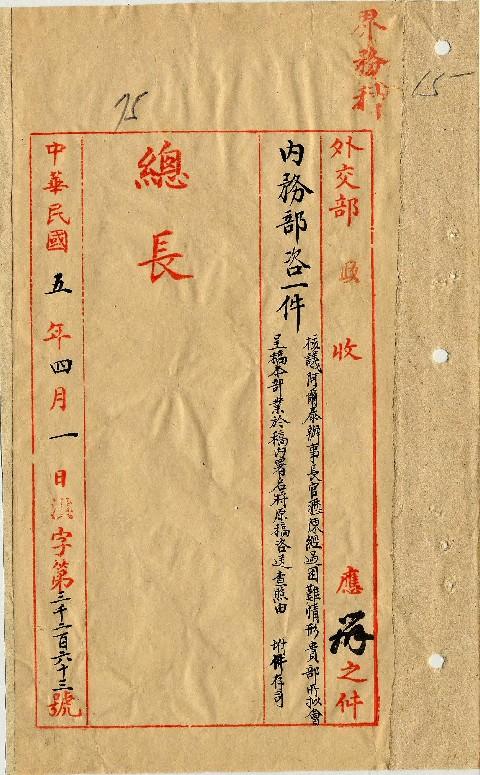 界務科
15
75
外交部 收 收 應 存 之件
內務部咨一件
核議阿爾泰辦事長官瀝陳經過困難情形貴部所擬會
呈稿本部業於稿內署名將原稿咨送查照由 附件存司
總長
中華民國五年四月一日洪字第三千二百六十三號